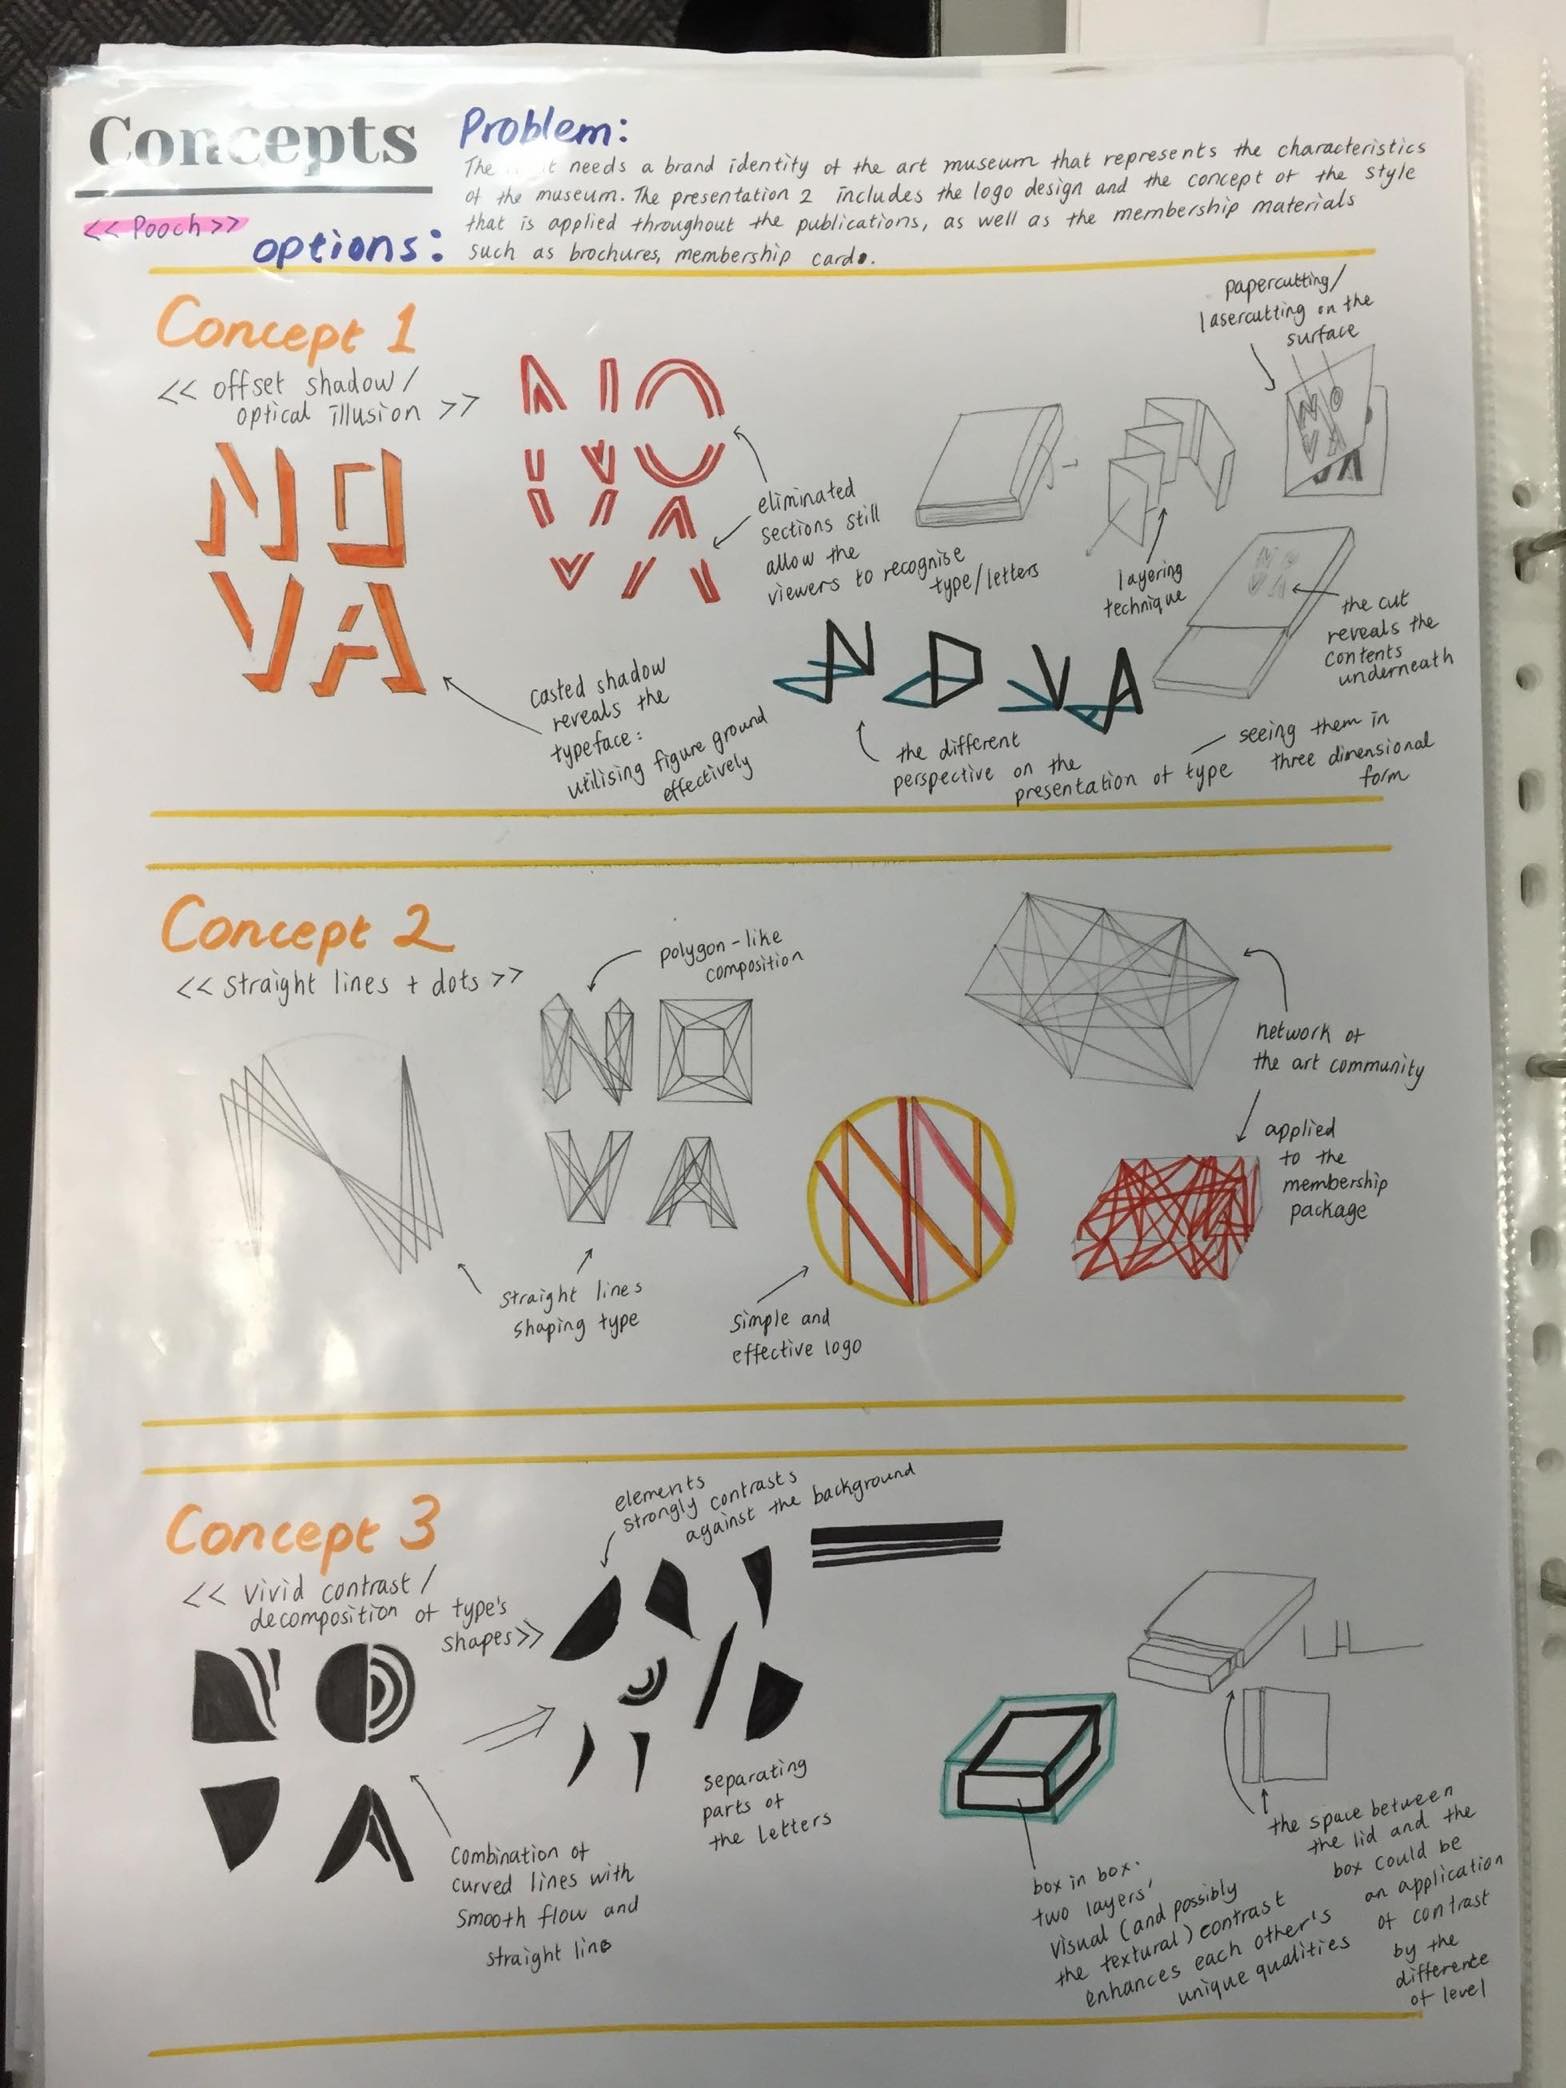 Concepts
<< Pooch >>
Problem:
The needs a brand identity of the art museum that represents the characteristics
of the museum. The presentation 2 includes the logo design and the concept of the style
that is applied throughout the publications, as well as the membership materials
such as brochures, membership cards.
options:
Concept 1
<< offset shadow/
optical illusion >>
NO
VA
NO
VA
eliminated
sections still
allow the
viewers to recognise
type/letters
casted shadow
reveals the
typeface:
utilising figure ground
effectively
NOVA
the different
perspective on the
presentation of type
seeing them in
three dimensional
form
layering
technique
papercutting/
lasercutting on the
surface
NO
VA
NO
VA
the cut
reveals the
contents
underneath
Concept 2
<< straight lines + dots >>
N
polygon-like
composition
NO
VA
straight lines
shaping type
simple and
effective logo
network of
the art community
applied
to the
membership
package
Concept 3
<< vivid contrast/
decomposition of type's
shapes >>
NO
VA
elements
strongly contrasts
against the background
combination of
curved lines with
smooth flow and
straight line
separating
parts of
the letters
box in box:
two layers'
visual (and possibly
the textural) contrast
enhances each other's
unique qualities
the space between
the lid and the
box could be
an application
of contrast
by the
difference
of level